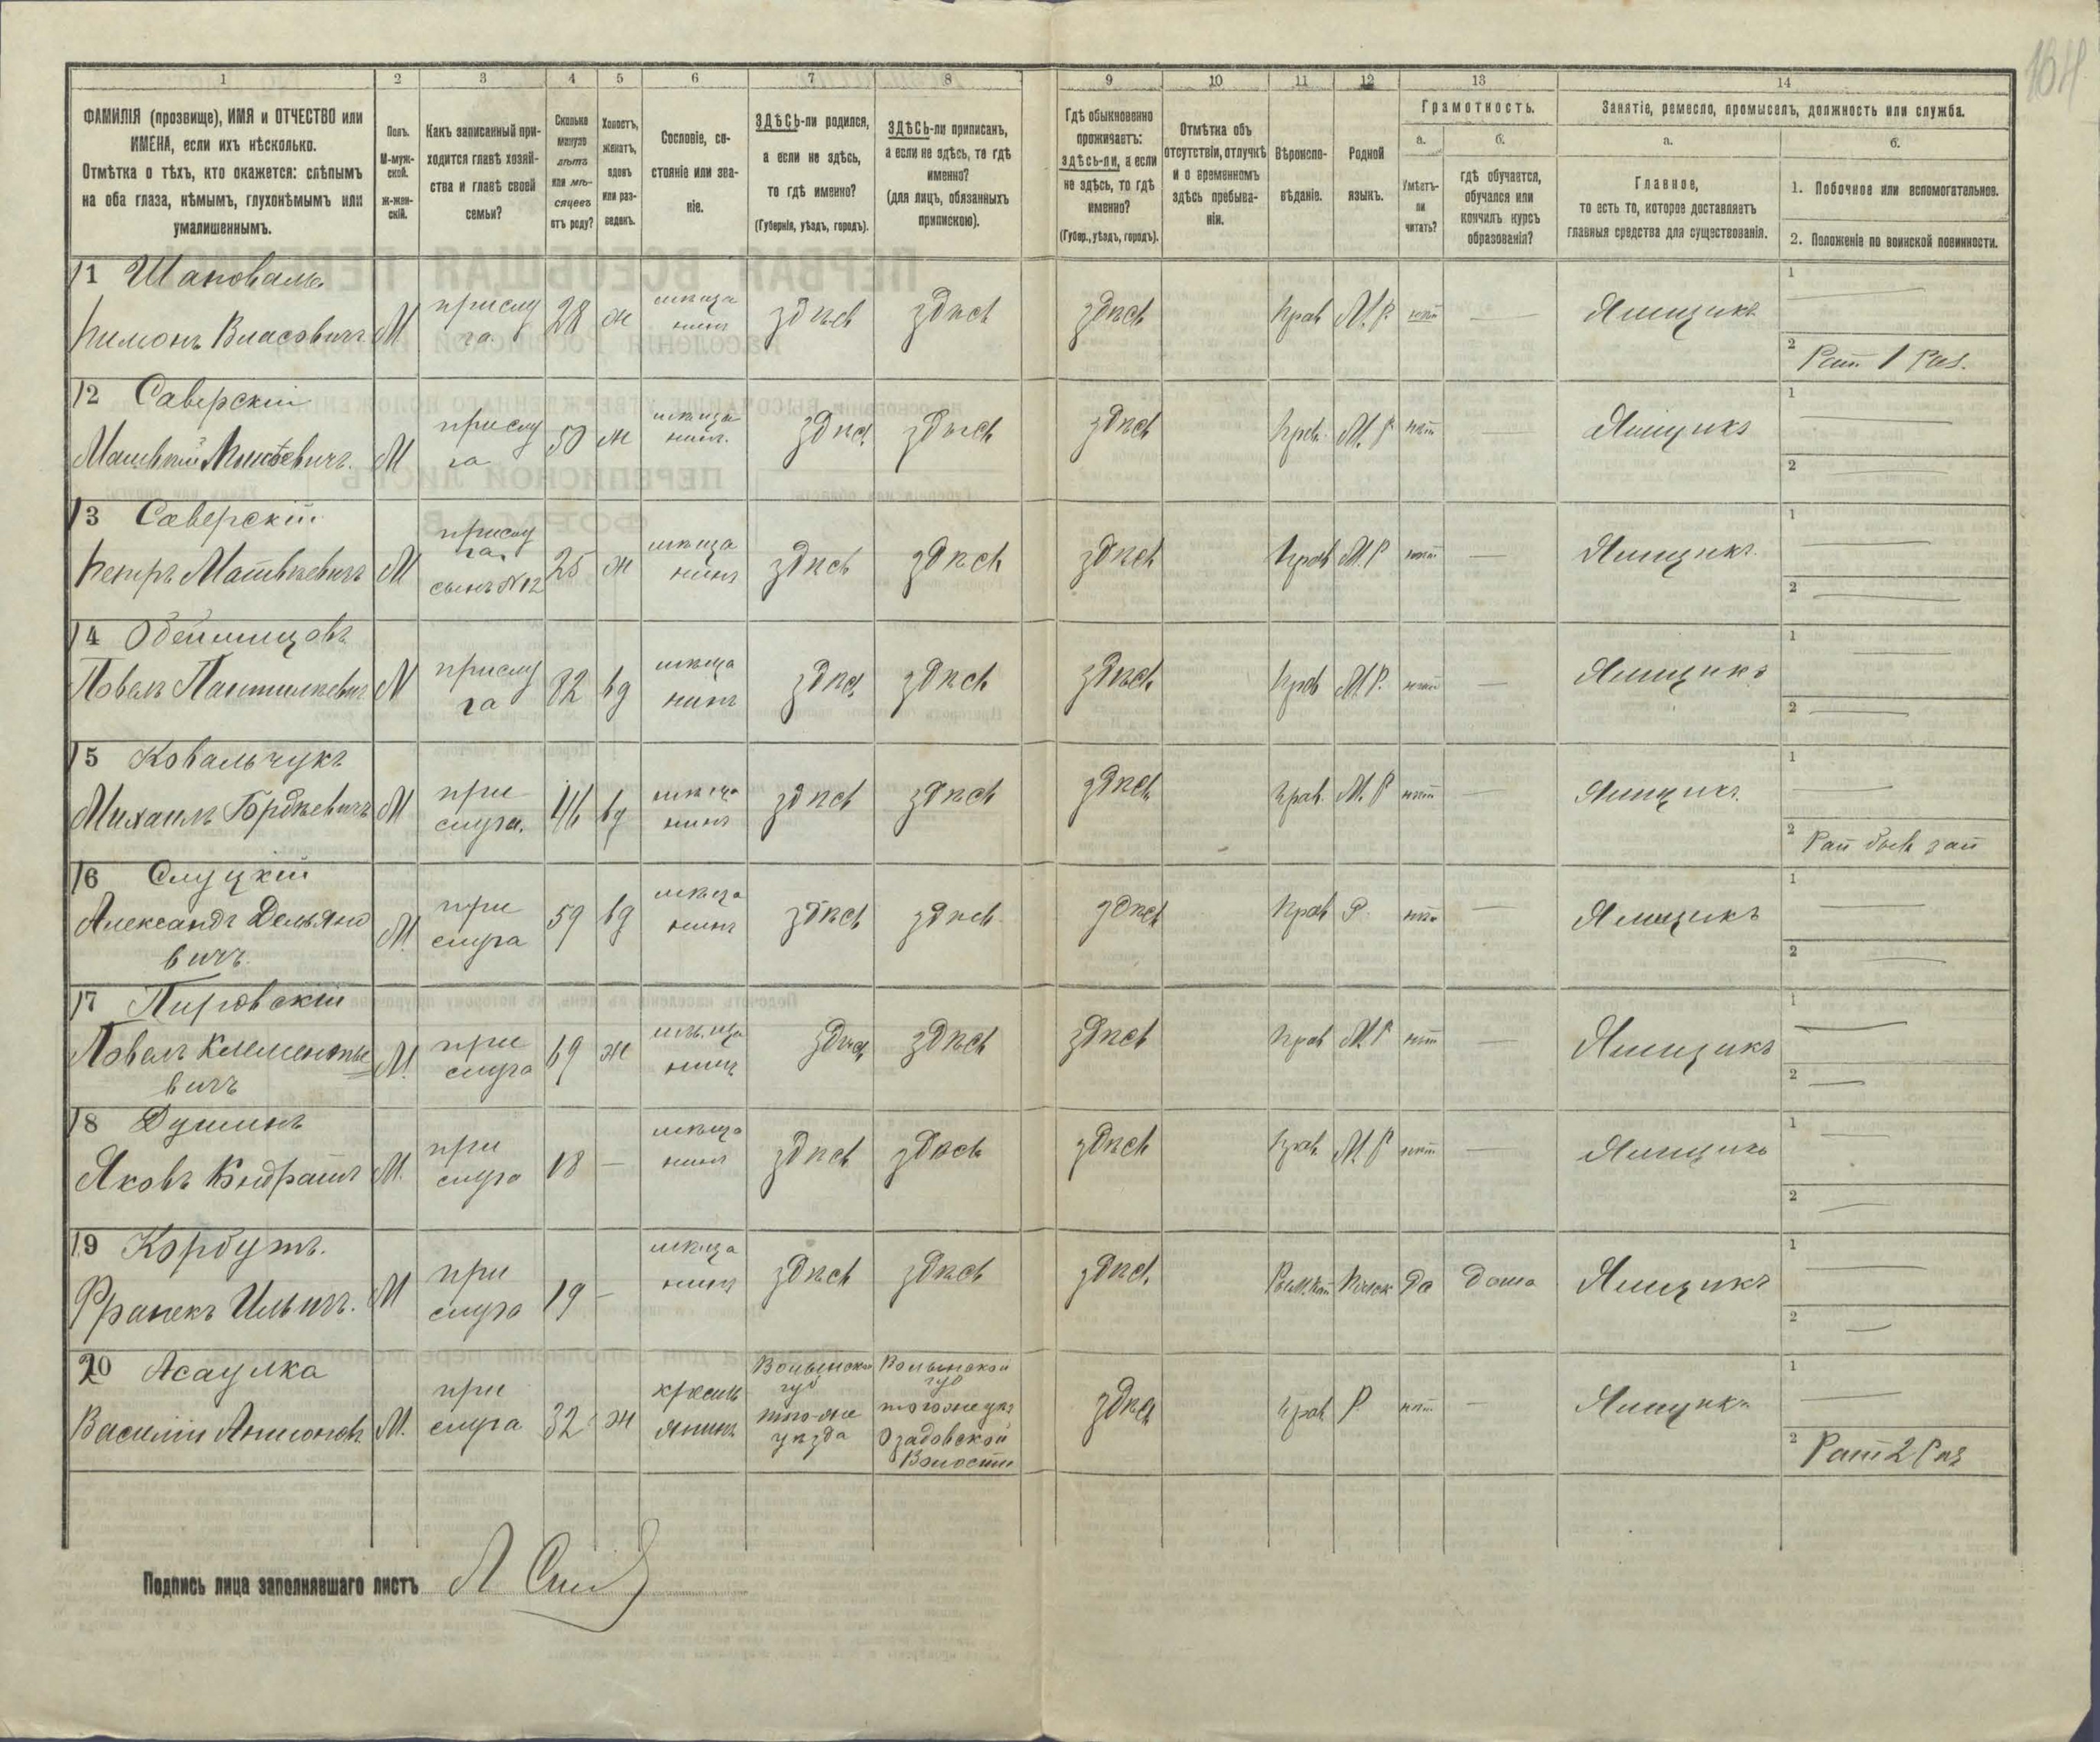 164
1 2 3 4 5 6 7 8 9 10 11 12 13 14
ФАМИЛІЯ (прозвище), ИМЯ и ОТЧЕСТВО или
ИМЕНА, если ихъ нѣсколько.
Отмѣтка о тѣхъ, кто окажется: слѣпымъ
на оба глаза, нѣмымъ, глухонѣмымъ или
умалишеннымъ.
Полъ.
М-муж-
ской.
ж-жен-
скій.
Какъ записанный при-
ходится главѣ хозяй-
ства и главѣ своей
семьи?
Сколько
минуло
лѣтъ
или мѣ-
сяцевъ
отъ роду?
Холостъ,
женатъ,
вдовъ
или раз-
веденъ.
Сословіе, со-
стояніе или зва-
ніе.
ЗДѢСЬ-ли родился,
а если не здѣсь,
то гдѣ именно?
(Губернія, уѣздъ, городъ).
ЗДѢСЬ-ли приписанъ,
а если не здѣсь, то гдѣ
именно?
(для лицъ, обязанныхъ
припискою).
Гдѣ обыкновенно
проживаетъ:
здѣсь-ли, а если
не здѣсь, то гдѣ
именно?
(Губер., уѣздъ, городъ).
Отмѣтка объ
отсутствіи, отлучкѣ
и о временномъ
здѣсь пребыва-
ніи.
Вѣроиспо-
вѣданіе.
Родной
языкъ.
Грамотность.
а.
Умѣетъ-
ли
читать?
б.
гдѣ обучается,
обучался или
кончилъ курсъ
образованія?
Занятіе, ремесло, промыселъ, должность или служба.
а.
Главное,
то есть то, которое доставляетъ
главныя средства для существованія.
б.
1. Побочное или вспомогательное.
2. Положеніе по воинской повинности.
11 Шаповалъ
Пимонъ Власовичъ М прислуга 28 ж мѣщанинъ здѣсь здѣсь здѣсь Прав М.Р. нѣт — Ямщикъ 1 — 2 Рат 1 Раз.
12 Саверскій
М прислуга 50 ж мѣщанинъ. здѣсь здѣсь здѣсь Прав. М.Р нѣт — Ямщикъ 1 — 2 —
13 Саверскій
Петръ Матвѣевичъ М прислуга сынъ №12 25 ж мѣщанинъ здѣсь здѣсь здѣсь Прав М.Р нѣт — Ямщикъ 1 — 2 —
14
Повелъ М прислуга вд мѣщанинъ здѣсь здѣсь здѣсь Прав М.Р. нѣт — Ямщикъ 1 — 2 —
15 Ковальчукъ
Михаилъ М прислуга. 46 вд мѣщанинъ здѣсь здѣсь здѣсь Прав. М.Р нѣт — Ямщикъ. 1 — 2 Рат
16 Слуцкій
Александъ Демьяно
вичъ. М. прислуга 59 вд мѣщанинъ здѣсь здѣсь здѣсь Прав Р. нѣт — Ямщикъ 1 — 2 —
17
Повелъ Клементье
вичъ М. прислуга 69 ж мѣщанинъ здѣсь здѣсь здѣсь Прав М.Р нѣт — Ямщикъ 1 — 2 —
18 Душинъ
Яковъ М. прислуга 18 — мѣщанинъ здѣсь здѣсь здѣсь Прав. М.Р нѣт — Ямщикъ 1 — 2 —
19 Корбутъ.
Франекъ Ильичъ. М прислуга 19 — мѣщанинъ здѣсь здѣсь здѣсь Рим. Кат Польск да дома Ямщикъ 1 — 2 —
20 Асаулка
Василій Антоновъ М. прислуга 32 ж крестьянинъ Волынской губ того-же уѣзда Волынской губ тогоже уѣз Озадовской Волости здѣсь Прав Р нѣт — Ямщикъ 1 — 2 Рат 2 Раз
Подпись лица заполнявшаго листъ